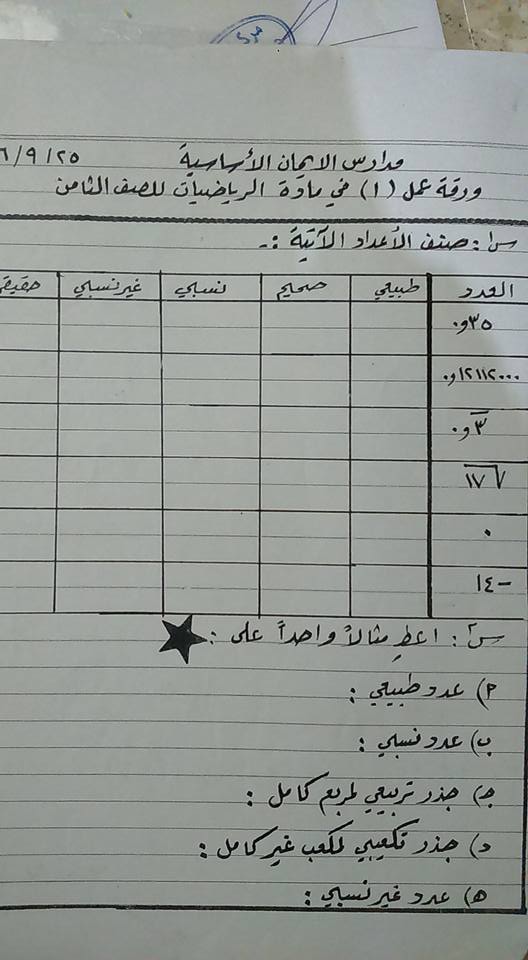 مدارس الايمان الأساسية ٦/٩/٢٥
ورقة عمل (١) في مادة الرياضيات للصف الثامن
س١: صنف الأعداد الآتية :-
العدد طبيعي صحيح نسبي غير نسبي حقيقي
٠و٣٥
٠و١٢١١٢٠٠٠
٠و٣̅
√١٧
٠
-١٤
س٢: اعطِ مثالاً واحداً على :
أ) عدد طبيعي :
ب) عدد نسبي :
ج) جذر تربيعي لمربع كامل :
د) جذر تكعيبي لمكعب غير كامل :
هـ) عدد غير نسبي :